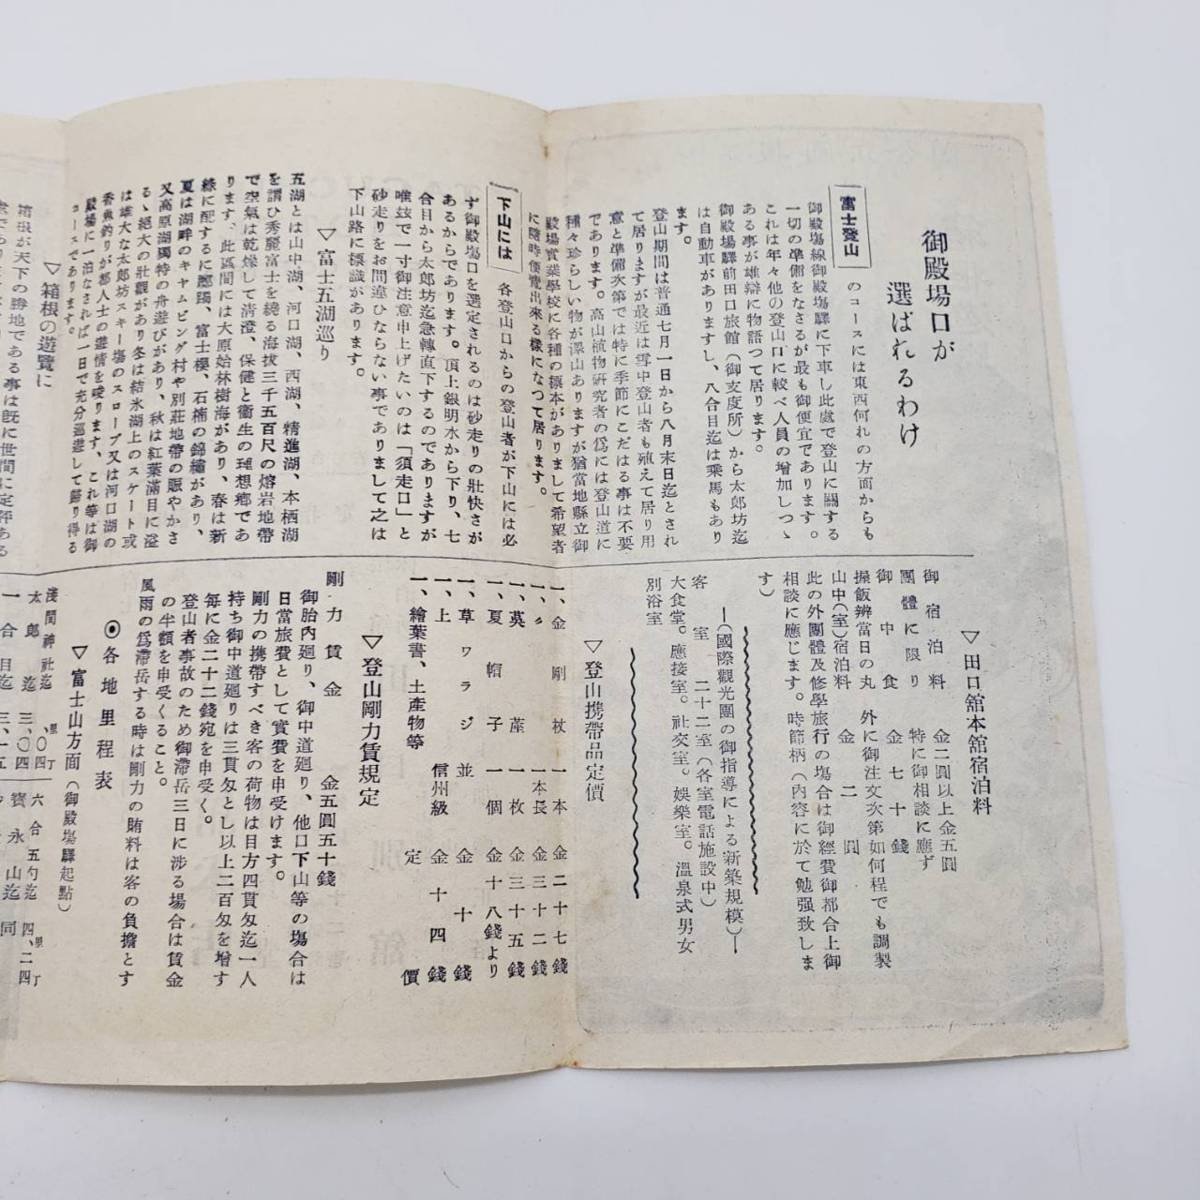 御殿場口が
選ばれるわけ
富士登山 のコースには東西何れの方面からも
御殿場線御殿場驛に下車し此處で登山に關する
一切の準備をなさるが最も御便宜であります。
これは年々他の登山口に較べ人員の増加しつゝ
ある事が雄辯に物語つて居ります。
御殿場驛前田口旅館(御支度所)から太郎坊迄
は自動車がありますし、八合目迄は乘馬もあり
ます。
登山期間は普通七月一日から八月末日迄とされ
て居りますが最近は雪中登山者も殖えて居り用
意と準備次第では特に季節にこだはる事は不要
であります。高山植物研究者の爲には登山道に
種々珍らしい物が澤山ありますが猶當地縣立御
殿場實業學校に各種の標本がありまして希望者
に隨時便覽出來る樣になつて居ります。
下山には 各登山口からの登山者が下山には必
ず御殿場口を選定されるのは砂走りの壯快さが
あるからであります。頂上銀明水から下り、七
合目から太郎坊迄急轉直下するのでありますが
唯玆で一寸御注意申上げたいのは「須走口」と
砂走りをお間違ひならない事でありまして之は
下山路に標識があります。
▽富士五湖巡り
五湖とは山中湖、河口湖、西湖、精進湖、本栖湖
を謂ひ秀麗富士を繞る海拔三千五百尺の熔岩地帶
で空氣は乾燥して清澄、保健と衞生の理想郷であ
ります。此區間には大原始林樹海があり、春は新
綠に配するに躑躅、富士櫻、石楠の錦繡があり、
夏は湖畔のキャムピング村や別莊地帶の賑やかさ
又高原湖獨特の舟遊びがあり、秋は紅葉滿目に溢
るゝ絕大の壯觀があり冬は結氷湖上のスケート或
は雄大な太郎坊スキー場のスロープ又は河口湖の
香魚釣りが都人士の遊情を唆ります、これ等は御
殿場に一泊なされば一日で充分巡遊して歸り得る
コースであります。
▽箱根の遊覽に
箱根が天下の勝地である事は既に世間に定評ある
▽田口舘本舘宿泊料
御宿泊料 金二圓以上金五圓
團體に限り 特に御相談に應ず
御中食 金七十錢
握飯辨當日の丸 外に御注文次第如何程でも調製
山中(室)宿泊料 金二圓
此の外團體及修學旅行の場合は御經費御都合上御
相談に應じます。時節柄(内容に於て勉强致しま
す)
―(國際觀光團の御指導による新築規模)―
客室 二十二室(各室電話施設中)
大食堂。應接室。社交室。娛樂室。溫泉式男女
別浴室
▽登山携帶品定價
一、金剛杖 一本 金二十七錢
一、〃 一本長 金三十二錢
一、茣蓙 一枚 金三十五錢
一、夏帽子 一個 金十八錢より
一、草ワラジ 並 金十錢
一、上 信州級 金十四錢
一、繪葉書、土產物等 定價
▽登山剛力賃規定
剛力賃金 金五圓五十錢
御胎内廻り、御中道廻り、他口下山等の場合は
日當旅費として實費を申受けます。
剛力の携帶すべき客の荷物は目方四貫匁迄一人
持ち御中道廻りは三貫匁とし以上二百匁を增す
每に金二十二錢宛を申受く。
登山者事故のため御滯岳三日に涉る場合は賃金
の半額を申受くること。
風雨の爲滯岳する時は剛力の賄料は客の負擔とす
◉各地里程表
▽富士山方面(御殿場驛起點)
里丁 里丁
淺間神社迄 、〇四 六合五勺迄 四、二四
太郎迄 三、〇四 寶永山迄 同
一合目迄 三、一五